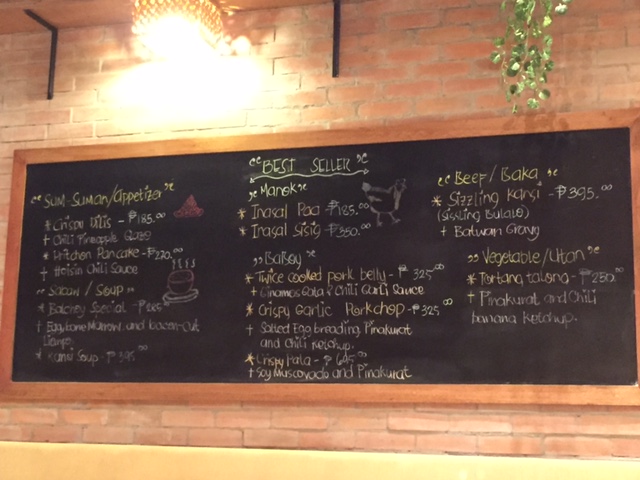 BEST SELLER
Sum-Suman/Appetizer
* Crispy Dilis - ₱185.00
+ Chili Pineapple Glaze
* Kitchen Pancake - ₱220.00
+ Hoisin Chili Sauce
Sabaw / Soup
* Balcney Special - ₱
+ Egg, bone Marrow, and bacon-cut
* Kansi Soup - ₱395.00
Manok
* Inasal Paa - ₱185.00
* Inasal Sisig - ₱350.00
Baboy
* Twice cooked pork belly - ₱325.00
+ Ginamos Gata & Chili Garli Sauce
* Crispy Garlic Porkchop - ₱325.00
+ Salted Egg breading, Pinakurat
and Chili ketchup.
* Crispy Pata - ₱645.00
+ Soy Muscovado and Pinakurat
Beef / Baka
* Sizzling Kansi - ₱395.00
(Sizzling Bulalo)
+ Batwan Gravy
Vegetable/Utan
* Tortang talong - ₱230.00
+ Pinakurat and Chili
banana ketchup.